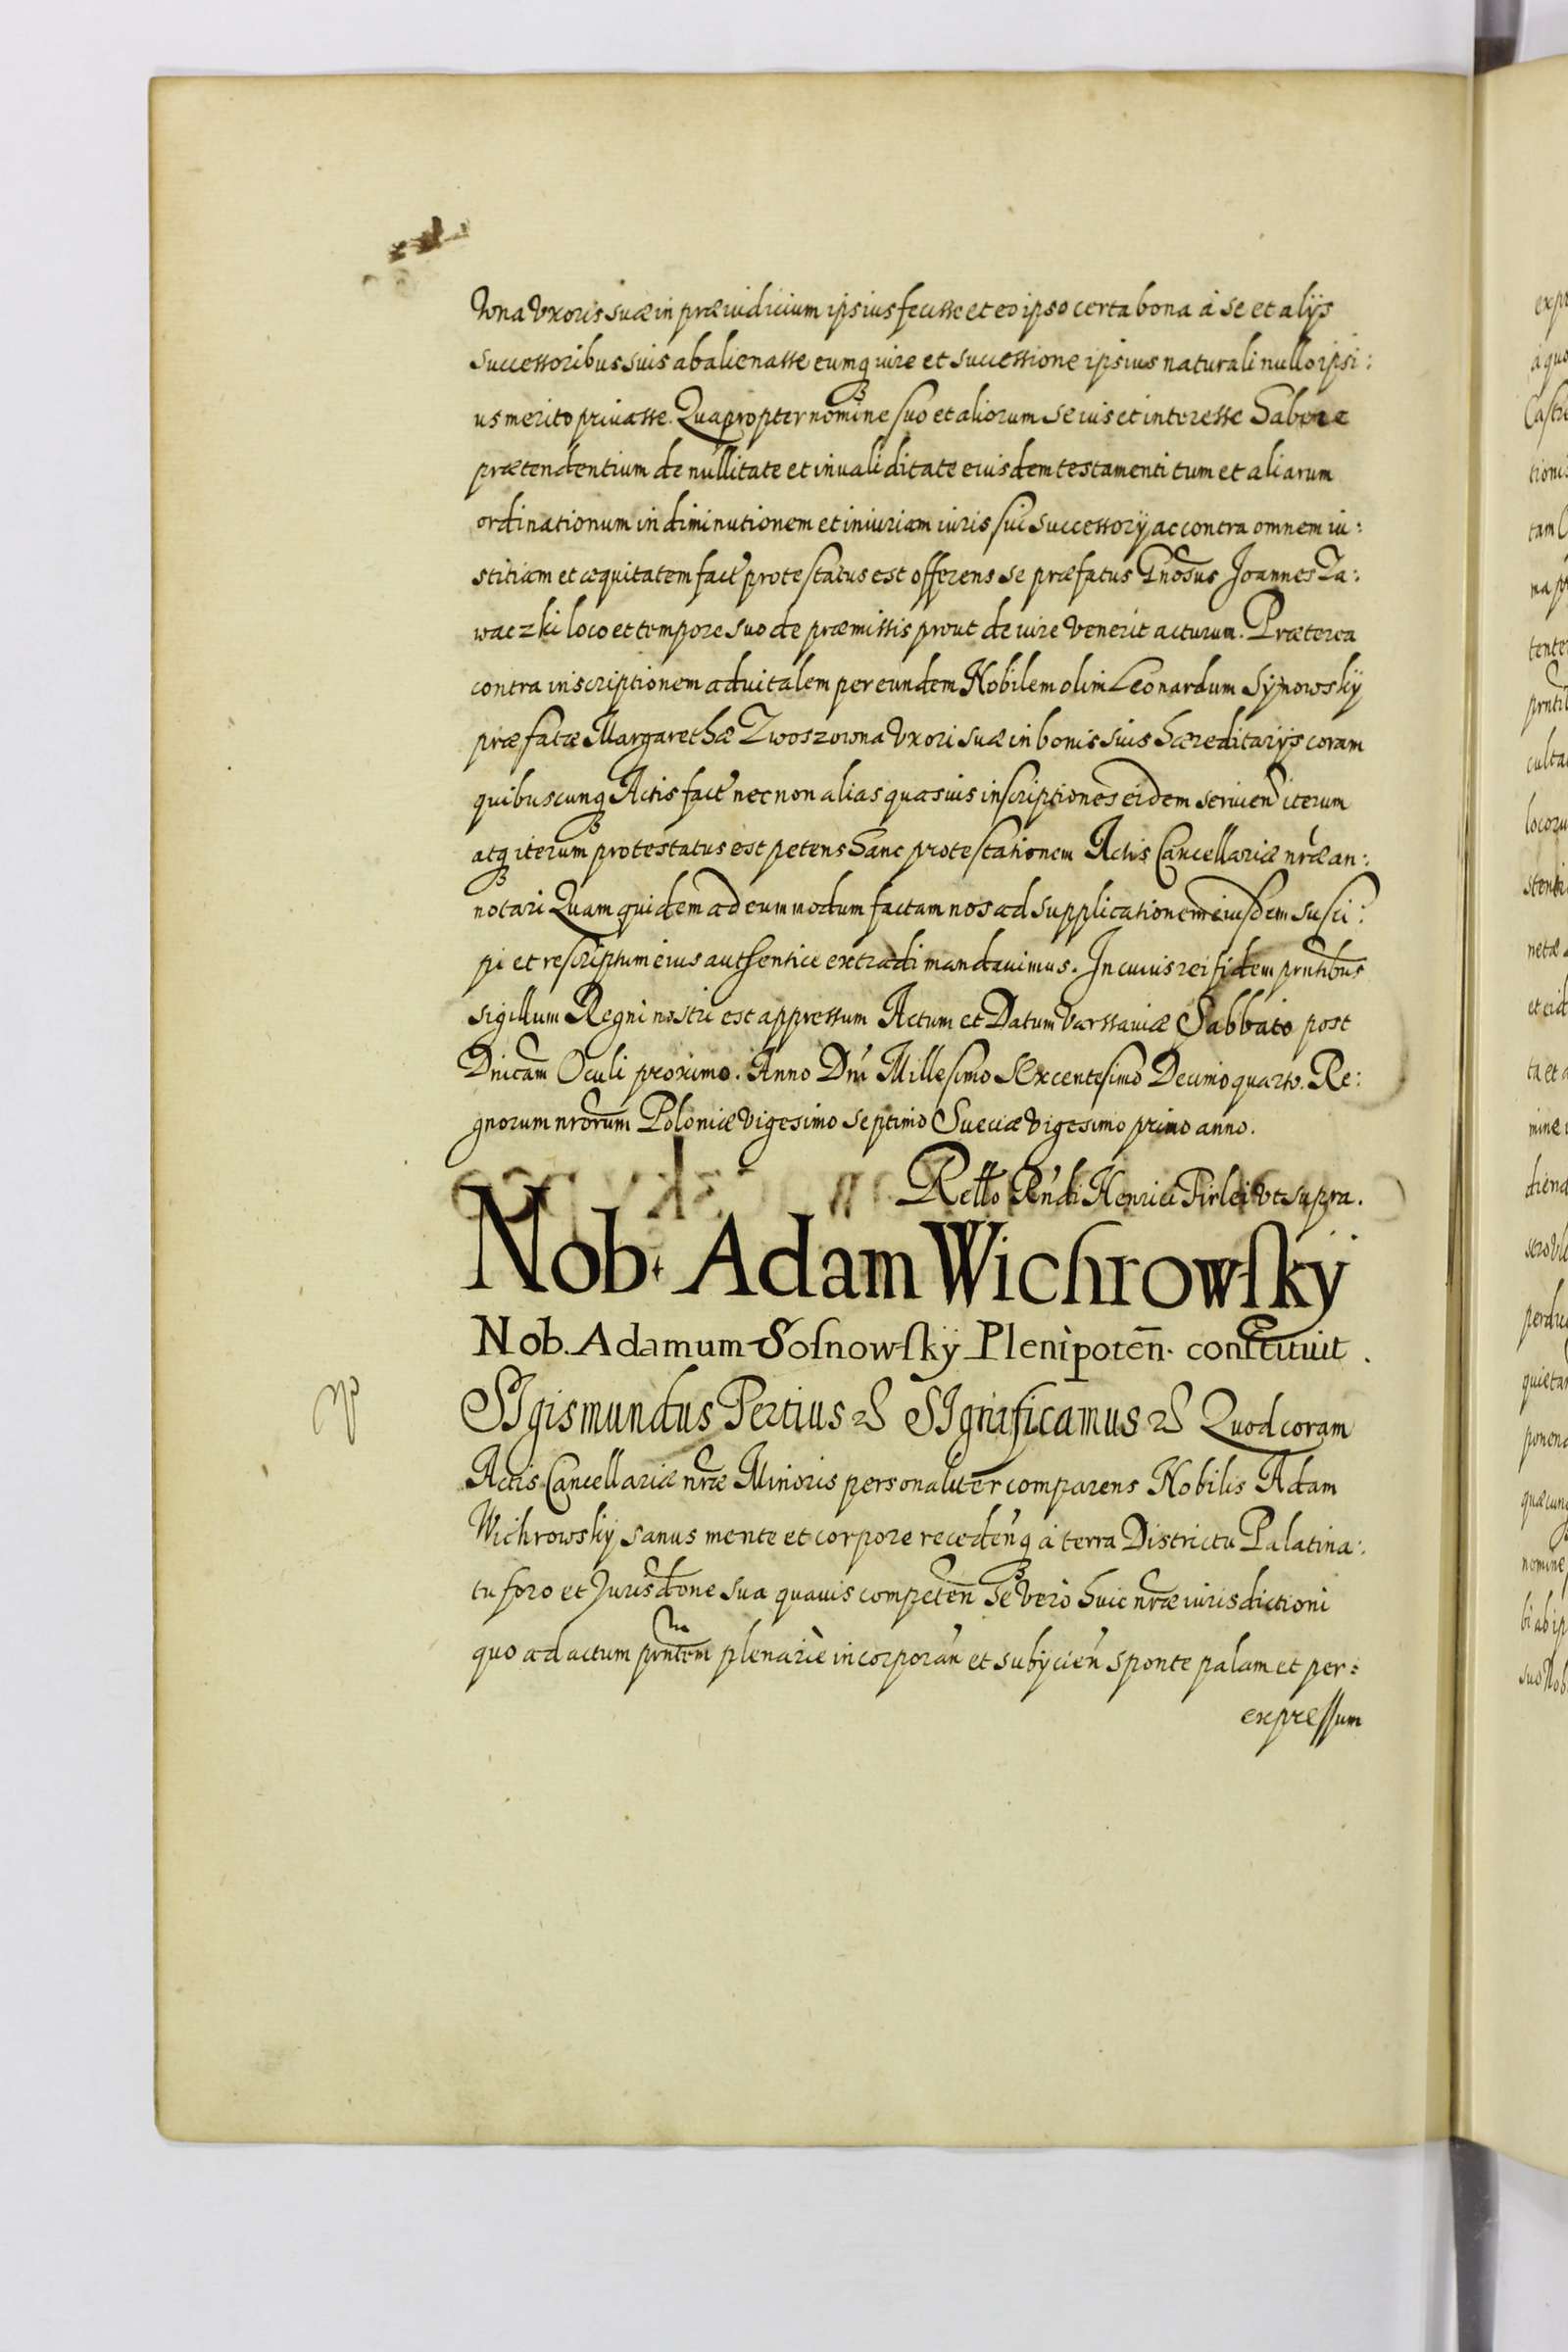 wna Vxoris suæ in præiudicium ipsius fecisse et eo ipso certa bona à se et alijs
successoribus suis abalienasse eumq iure et successione ipsius naturali nullo ipsi:
us merito priuasse. Quapropter nomine suo et aliorum se ius et interesse habere
prætendentium de nullitate et inualiditate eiusdem testamenti tum et aliarum
ordinationum in diminutionem et iniuriam iuris sui successorij ac contra omnem iu:
stitiam et æquitatem fact protestatus est offerens se præfatus Gnosus Joannes Za:
waczki loco et tempore suo de præmissis prout de iure venerit acturum. Præterea
contra inscriptionem aduitalem per eundem Nobilem olim Leonardum Synowskÿ
præfatæ Margarethæ Zwoszowna Vxori suæ in bonis suis hæreditarijs coram
quibuscunq Actis fact nec non alias quasuis inscriptiones eidem seruien iterum
atq iterum protestatus est petens hanc protestationem Actis Cancellariæ nræ an:
notari Quam quidem ad eum modum factam nos ad supplicationem eiusdem susci:
pi et rescriptum eius authentice extradi mandauimus. In cuius rei fidem prntibus
sigillum Regni nostri est appressum Actum et Datum Varssauiæ Sabbato post
Dnicam Oculi proximo. Anno Dni Millesimo Sexcentesimo Decimo quarto. Re:
gnorum nrorum Poloniæ vigesimo septimo Sueciæ vigesimo primo anno.
Retto Rndi Henrici Firlei vt supra.
Nob. Adam Wichrowsky
Nob. Adamum Sosnowskÿ Plenipoten. constituit.
SIgismundus Tertius SIgnificamus Quod coram
Actis Cancellariæ nræ Minoris personaliter comparens Nobilis Adam
Wichrowskÿ sanus mente et corpore recedenq à terra Districtu Palatina:
tu foro et Jurisdone sua quauis competen se verò huic nræ iurisdictioni
quo ad actum prntem plenariè incorporan et subijcien sponte palam et per:
expressum